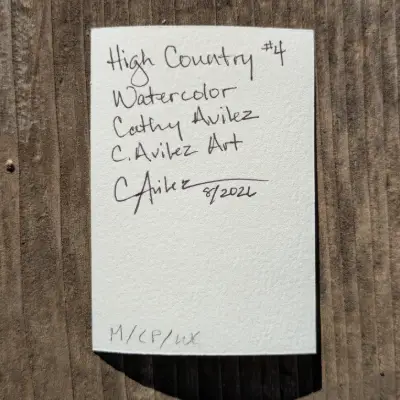 High Country #4
Watercolor
Cathy Avilez
C. Avilez Art
CAvilez